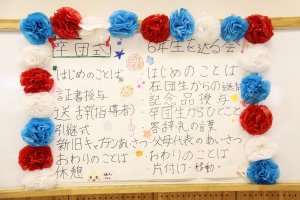 卒団式
はじめのことば
証書授与
送辞(指導者)
引継式
新旧キャプテンあいさつ
おわりのことば
休憩
6年生を送る会
はじめのことば
在団生からの
記念品授与
卒団生からひとこと
答辞 礼の言葉
父母代表のあいさつ
おわりのことば
片付け・移動